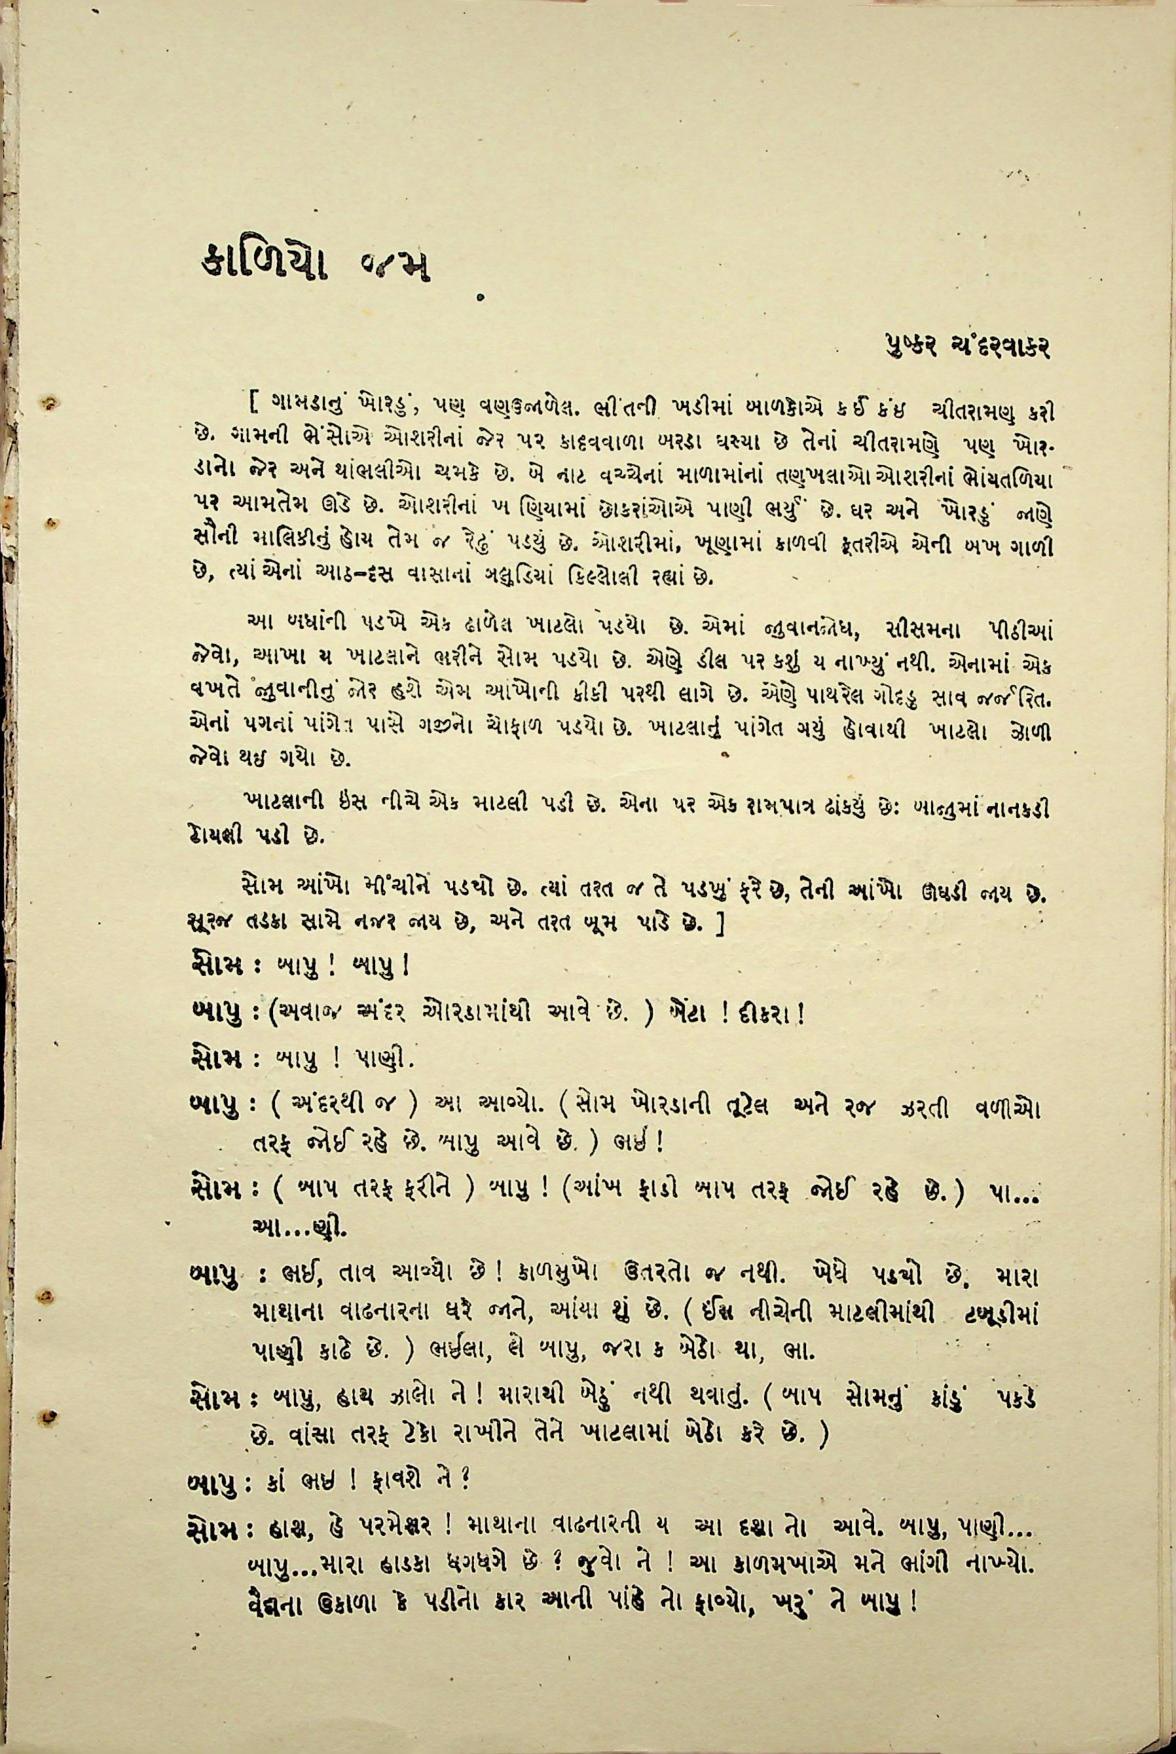 કાળિયો જમ
પુષ્કર ચંદરવાકર
[ ગામડાનું ખોરડું, પણ વણઉજાળેલ. ભીંતની ખડીમાં બાળકોએ કઈ કંઇ ચીતરામણ કરી
છે. ગામની ભેંસોએ ઓશરીનાં જેર પર કાદવવાળા બરડા ઘસ્યા છે તેનાં ચીતરામણે પણ ખોર-
ડાનો જેર અને થાંભલીઓ ચમકે છે. બે નાટ વચ્ચેનાં માળામાંનાં તણખલાઓ ઓશરીનાં ભોંયતળિયા
પર આમતેમ ઊડે છે. ઓશરીનાં ખ ણિયામાં છોકરાંઓએ પાણી ભર્યું છે. ઘર અને ખોરડું જાણે
સૌની માલિકીનું હોય તેમ જ રેઢું પડયું છે. ઓશરીમાં, ખૂણામાં કાળવી કૂતરીએ એની બખ ગાળી
છે, ત્યાં એનાં આઠ-દસ વાસાનાં ગલુડિયાં કિલ્લોલી રહ્યાં છે.
આ બધાંની પડખે એક ઢાળેલ ખાટલો પડયો છે. એમાં જુવાનજોધ, સીસમના પીઠીઆં
જેવો, આખા ય ખાટલાને ભરીને સોમ પડયો છે. એણે ડીલ પર કશું ય નાખ્યું નથી. એનામાં એક
વખતે જુવાનીનું જોર હશે એમ આંખોની કીકી પરથી લાગે છે. એણે પાથરેલ ગોદડુ સાવ જર્જરિત.
એનાં પગનાં પાંગેત પાસે ગજીનો ચોફાળ પડયો છે. ખાટલાનું પાંગેત ગયું હોવાથી ખાટલો ઝોળી
જેવો થઇ ગયો છે.
ખાટલાની ઇસ નીચે એક માટલી પડી છે. એના પર એક રામપાત્ર ઢાંકયું છે: બાજુમાં નાનકડી
ટોયલી પડી છે.
સોમ આંખો મીંચીને પડયો છે. ત્યાં તરત જ તે પડખું ફરે છે, તેની આંખો ઊઘડી જાય છે.
સૂરજ તડકા સામે નજર જાય છે, અને તરત બૂમ પાડે છે. ]
સોમ : બાપુ ! બાપુ !
બાપુ : (અવાજ અંદર ઓરડામાંથી આવે છે. ) બેટા ! દીકરા !
સોમ : બાપુ ! પાણી.
બાપુ : ( અંદરથી જ ) આ આવ્યો. ( સોમ ખોરડાની તૂટેલ અને રજ ઝરતી વળીઓ
તરફ જોઈ રહે છે. બાપુ આવે છે. ) ભઇ !
સોમ : ( બાપ તરફ ફરીને ) બાપુ ! (આંખ ફાડી બાપ તરફ જોઈ રહે છે. ) પા...
આ...ણી.
બાપુ : ભઈ, તાવ આવ્યો છે ! કાળમુખો ઉતરતો જ નથી. ખેધે પડયો છે. મારા
માથાના વાઢનારના ઘરે જાને, આંયા શું છે. ( ઈસ નીચેની માટલીમાંથી ટબૂડીમાં
પાણી કાઢે છે. ) ભઈલા, લે બાપુ, જરા ક બેઠો થા, ભા.
સોમ : બાપુ, હાથ ઝાલો ને ! મારાથી બેઠું નથી થવાતું. ( બાપ સોમનું કાંડું પકડે
છે. વાંસા તરફ ટેકો રાખીને તેને ખાટલામાં બેઠો કરે છે. )
બાપુ : કાં ભઇ ! ફાવશે ને ?
સોમ : હાશ, હે પરમેશ્વર ! માથાના વાઢનારની ય આ દશા નો આવે. બાપુ, પાણી...
બાપુ...મારા હાડકા ધગધગે છે ? જુવો ને ! આ કાળમખાએ મને ભાંગી નાખ્યો.
વૈદ્યના ઉકાળા કે પડીનો કાર આની પાંહે નો ફાવ્યો, ખરું ને બાપુ !